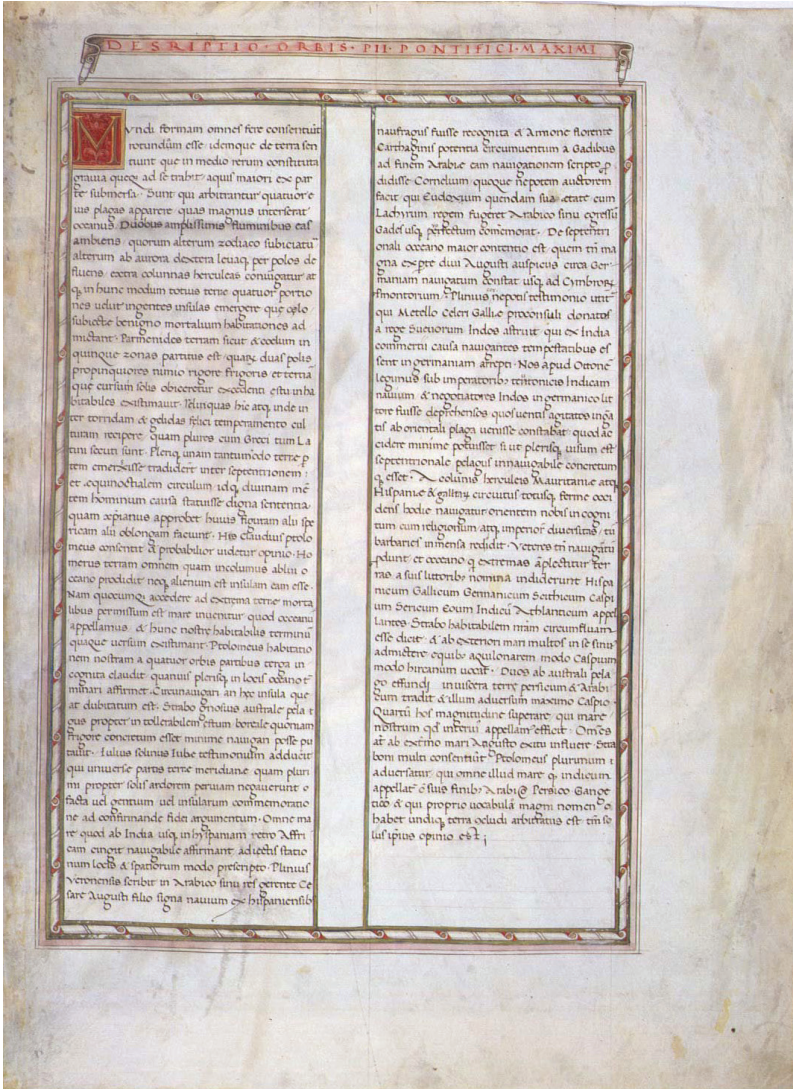 DESRIPTIO · ORBIS · PII · PONTIFICI · MAXIMI
Mundi formam omnes fere consentiũt
rotundum esse idemque de terra sen
tiunt que in medio rerum constituta
gravia queqʒ ad se trahit · aquis maiori ex par
te submersa · Sunt qui arbitrantur quatuor e
ius plagas apparere quas magnus interserat
occeanus · Duobus amplissimis fluminibus eas
ambiens · quorum alterum zodiaco subiciatur̃
alterum ab aurora dextera levaqʒ per polos de
fluens · extra columnas herculeas coniugatur at
qʒ in hunc modum totius terre quatuor portio
nes velut ingentes insulas emergere que celo
subiecte benigno mortalium habitationes ad
mictant · Parmenides terram sicut & coelum in
quinque zonas partitus est · quarʒ duas polis
propinquiores nimio rigore frigoris et tertiã
que cursum solis obiceretur excedenti estu inha
bitabiles existimavit · Reliquas hic atqʒ inde in
ter torridam & gelidas felici temperamento cul
turam recipere · Quam plures cum Greci tum La
tini secuti sunt · Pleriqʒ unam tantummodo terre ꝑ
tem emersisse tradiderunt inter septentrionem ·
et equinoctialem circulum idqʒ divinam mẽ
tem hominum causa statuisse digna sententia
quam xp̃ianus approbet huius figuram alii spe
ricam alii oblongam faciunt · His claudius ptolo
meus consentit & probabilior videtur opinio · Ho
merus terram omnem quam incolimus ablui o
ceano prodidit neqʒ alienum est insulam eam esse ·
Nam quocumqʒ accedere ad extrema terre morta
libus permissum est mare invenitur quod occeanũ
appellamus · & hunc nostre habitabilis terminũ
quaque versum existimant · Ptolomeus habitatio
nem nostram a quatuor orbis partibus terra in
cognita claudit quamvis plerisqʒ in locis oceano t̃
minari affirmet · Circunavigari an hec insula que
at dubitatum est · Strabo gnosius australe pela
gus propter intollerabilem estum boreale quoniam
frigore concretum esset minime navigari posse pu
tavit · Iulius solinus Iube testimonium adducit
qui universe partis terre meridiane quam pluri
mi propter solis ardorem perviam negaverunt
facta vel gentium vel insularum commemoratio
ne ad confirmande fidei argumentum · Omne ma
re quod ab India usqʒ in hyspaniam retro Affri
cam cingit navigabile affirmant adiectis statio
num locis & spatiorum modo prescripto · Plinius
Veronensis scribit in Arabico sinu res gerente Ce
sare Augusti filio signa navium ex hispaniensib
naufragiis fuisse recognita & Annone florente
Carthaginis potentia circumventum a Gadibus
ad finem Arabie eam navigationem scripto ꝓ
didisse Cornelium quoque nepotem auctorem
facit qui Eudoxium quendam sua etate cum
Lachrum regem fugeret Arabico sinu egressũ
Gades usqʒ pervectum comemorat · De septentri
onali occeano maior contentio est quem tñ ma
gna ex parte divi Augusti auspiciis circa Ger
maniam navigatum constat usqʒ ad Cymbrorʒ
ꝓmontorium · Plinius nepotis testimonio utit̃
qui Metello Celeri Gallie proconsuli donatos
a rege Suevorum Indos astruit qui ex India
commertii causa navigantes tempestatibus es
sent in germaniam arrepti · Nos apud Ottonẽ
legimus sub imperatoribʒ teutonicis Indicam
navium & negotiatores Indos in germanico lit
tore fuisse deprehensos quos venti agitatos ingra
tis ab orientali plaga venisse constabat · quod ac
cidere minime potuisset si ut plerisqʒ visum est
septentrionale pelagus innavigabile concretum
qʒ esset · A colũnis herculeis Mauritanie atqʒ
Hispanie & galliarʒ circuitus totusqʒ ferme occi
dens hodie navigatur orientem nobis incogni
tum cum religionum atqʒ imperiorʒ diversitas · tũ
barbaries inmensa reddidit · Veteres tñ navigatũ
ꝓdunt · et occeano qʒ extremas ãplectitur ter
ras a suis littoribʒ nomina indiderunt Hispa
nicum Gallicum Germanicum Scithicum Caspi
um Sericum Eoum Indicũ Athlanticum appel
lantes · Strabo habitabilem nr̃am circumfluam
esse dicit · & ab exteriori mari multos in se sinus
admictere equibʒ aquilonarem modo Caspium
modo hircanum vocat · Duos ab australi pela
go effundi in viscera terre persicum & Arabi
cum tradit & illum adversum maximo Caspio ·
Quartũ hos magnitudine superare qui mare
nostrum qđ interiũ appellam̃ efficit · Om̃es
at ab extr̃mo mari Angusto exitu influere · Stra
boni multi consentiũt Ptolomeus plurimum i
adversatur · qui omne illud mare qʒ indicum
appellat̃ c̃ suis finibʒ Arabico Persico Gange
tico & qui proprio vocabula magni nomen
habet undiqʒ terra cludi arbitratus est tm̃ so
lus ipsius opinio est ;